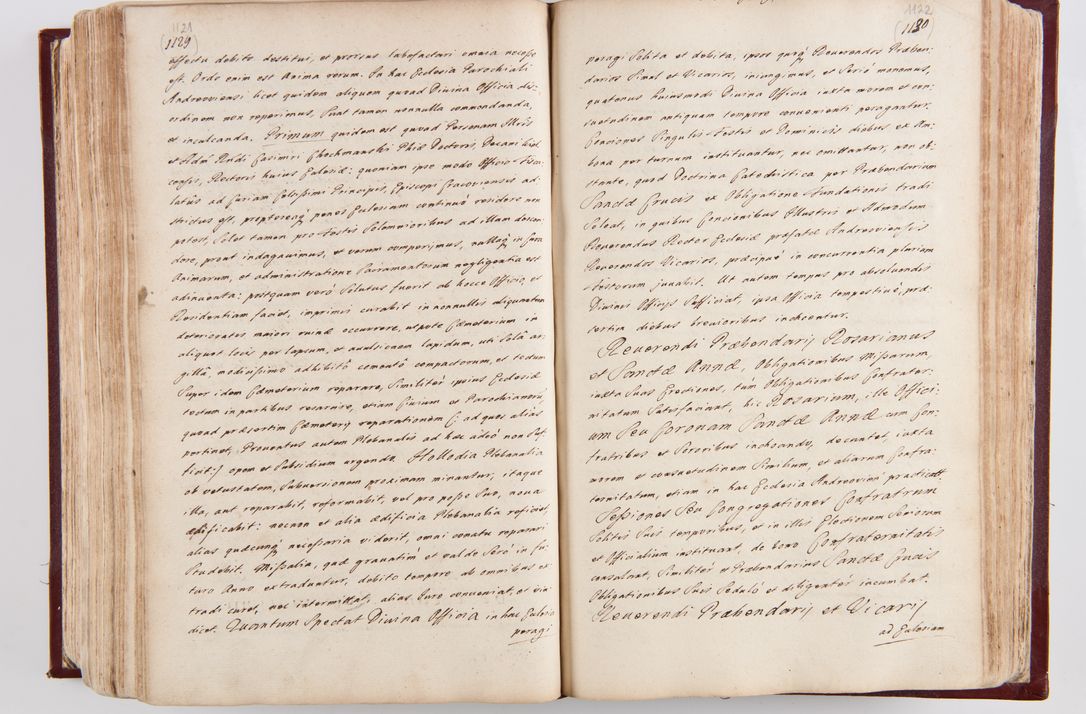 1121
(1129)
effectu debito destitui, et prorsus labefactari omnia necesse
est. Ordo enim est Anima rerum. In hac Ecclesia Parochiali
Andreoviensi licet quidem aliquem quoad Divina Officia des-
ordinem non reperimus, Sunt tamen nonnulla commendanda,
et inculcanda. Primum quidem est quoad Personam Illris
et Adm Rndi Casimiri Chochmanski Phiæ Doctoris, Decani Kiel-
censis, Rectoris huius Ecclesiæ: quoniam ipse modo Officio
latûs ad Curiam Celsissimi Principis, Episcopi Cracoviensis ad-
strictus est, proptereaq penes Ecclesiam continuò residere non
potest, Solet tamen pro Festis Solemnioribus ad illam descen-
dere, prout indagavimus, et verum comperimus, nullaq in Cura
Animarum, et administratione Sacramentorum negligentia est
adinventa: postquam verò Solutus fuerit ab hocce Officio, et
Residentiam faciet, inprimis curabit in nonnullis aliquantum
deteriorates maiori ruinæ occurrere, utpote Cæmeterium in
aliquot locis per lapsum, et avulsionem lapidum, uti Solâ ar-
gillâ, modicissimo adhibitô cementô compactorum, et tectum
Super idem Cæmeterium reparare, Similiter ipsius Ecclesiæ
tectum in partibus resarcire, etiam Civium et Parochianorũ,
quoad præsertim Cæmeterij reparationem (: ad quos alias
pertinet, Proventus autem Plebanalis ad hæc adeò non Suf-
ficit:) opem et Subsidium urgendo. Hollodia Plebanalia
ob vetustatem, Subversionem proximam minantur, itaque
illa, aut reparabit, reformabit, vel pro posse Suo, nova
ædificabit: necnon et alia ædificia Plebanalia reficiet,
alias quæcunq necessaria viderit, omni conatu reparari
Studebit. Missalia, quæ gravatim et valde Serò in fu-
turo Anno extraduntur, debito tempore ab omnibus ex-
tradi curet, nec intermittat, alias Jure conveniat, et vin-
dicet. Quantum Spectat Divina Officia in hac Ecclesia
peragi
1122
(1130)
peragi Solita et debita, ipsos quoq Reverendos Præben-
darios Simul et Vicarios, iniungimus, et Seriò monemus,
quatenus huiusmodi Divina Officia iuxta morem et con-
suetudinem antiquam tempore convenienti peragantur.
Conciones Singulis Festis et Dominicis diebus ex Am-
bona per turnum instituantur, nec omittantur, non ob-
stante, quod Doctrina Catechistica per Præbendarium
Sanctæ Crucis ex Obligatione Fundationis tradi
Soleat, in quibus Concionibus Illustris et Admodum
Reverendus Rector Ecclesiæ præfatæ Andreoviensis
Reverendos Vicarios, præcipuè in concurrentia plurium
Festorum juvabit. Ut autem tempus pro absolvendis
Divinis Officijs Sufficiat, ipsa Officia tempestivè, præ-
sertim diebus brevioribus inchoentur.
Reverendi Præbendarij Rosarianus
et Sanctæ Annæ, Obligationibus Missarum,
iuxta Suas Erectiones, tùm Obligationibus Confrater-
nitatum Satisfaciant, hic Rosarium, ille Offici-
um Seu Coronam Sanctæ Annæ cum Con-
fratribus et Sororibus inchoando, decantet, iuxta
morem et consuetudinem Similium, et aliarum Confra-
ternitatum, etiam in hac Ecclesia Andreovien practicatæ.
Sessiones Seu Congregationes Confratrum
Solitis Suis temporibus, et in illis Electionem Seniorum
et Officialium instituant, de bono Confraternitatis
consulant, Similiter et Præbendarius Sanctæ Crucis
Obligationibus Suis Sedulò et diligenter incumbat.
Reverendi Præbendarij et Vicarij
ad Ecclesiam